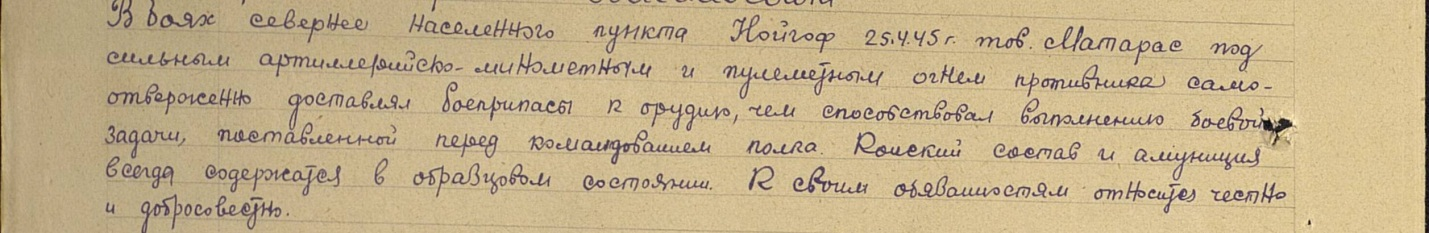 В боях севернее населенного пункта Нойгоф 25.4.45 г. тов. Матарас под
сильным артиллерийско-минометным и пулеметным огнем противника само-
отверженно доставлял боеприпасы к орудию, чем способствовал выполнению боевой
задачи, поставленной перед командованием полка. Конский состав и амуниция
всегда содержатся в образцовом состоянии. К своим обязанностям относится честно
и добросовестно.